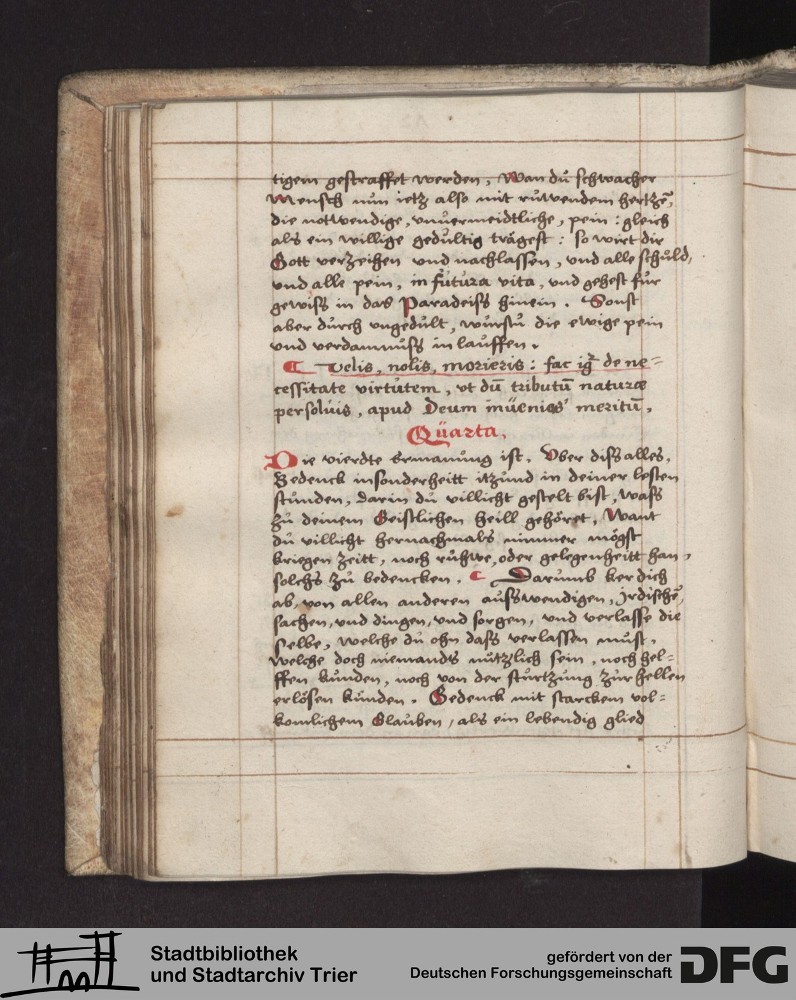 tigem gestraffet werden, Wan du schwacher
Mensch nun ietz also mit ruwendem hertzẽ,
die notwendige, vnuermeidtliche, pein : gleich
als ein willige gedultig trägest : so wirt dir
Gott verzeihen vnd nachlassen, vnd alle schuld,
vnd alle pein, in futura vita, vnd gehest fur
gewiss in das Paradeiss hinein. Sonst
aber durch vngedult, wurstu die ewige pein
vnd verdamnuss in lauffen.
¶ Velis, nolis, morieris : fac ig̃ de ne=
cessitate virtutem, vt dũ tributũ naturæ
persoluis, apud Deum inuenies meritũ,
Quarta.
Die vierdte Ermanung ist. Vber diss alles,
Bedenck insonderheitt itzund in deiner lesten
stunden, darin du villicht gestelt bist, wass
zu deinem Geistlichen heill gehöret, Want
du villicht hernachmals nimmer mögst
kriegen zeitt, noch ruhwe, oder gelegenheitt han,
solchs zu bedencken. ¶ Darumb ker dich
ab, von allen anderen ausswendigen, Irdischẽ,
sachen, vnd dingen, vnd sorgen, vnd verlasse die
selbe, welche du ohn dass verlassen must,
welche doch niemands nützlich sein, noch hel=
ffen kunden, noch von der sturtzung zur hellen
erlösen kunden. Gedenck mit starckem vol=
komlichem Glauben, als ein lebendig glied
Stadtbibliothek
und Stadtarchiv Trier
gefördert von der
Deutschen Forschungsgemeinschaft
DFG